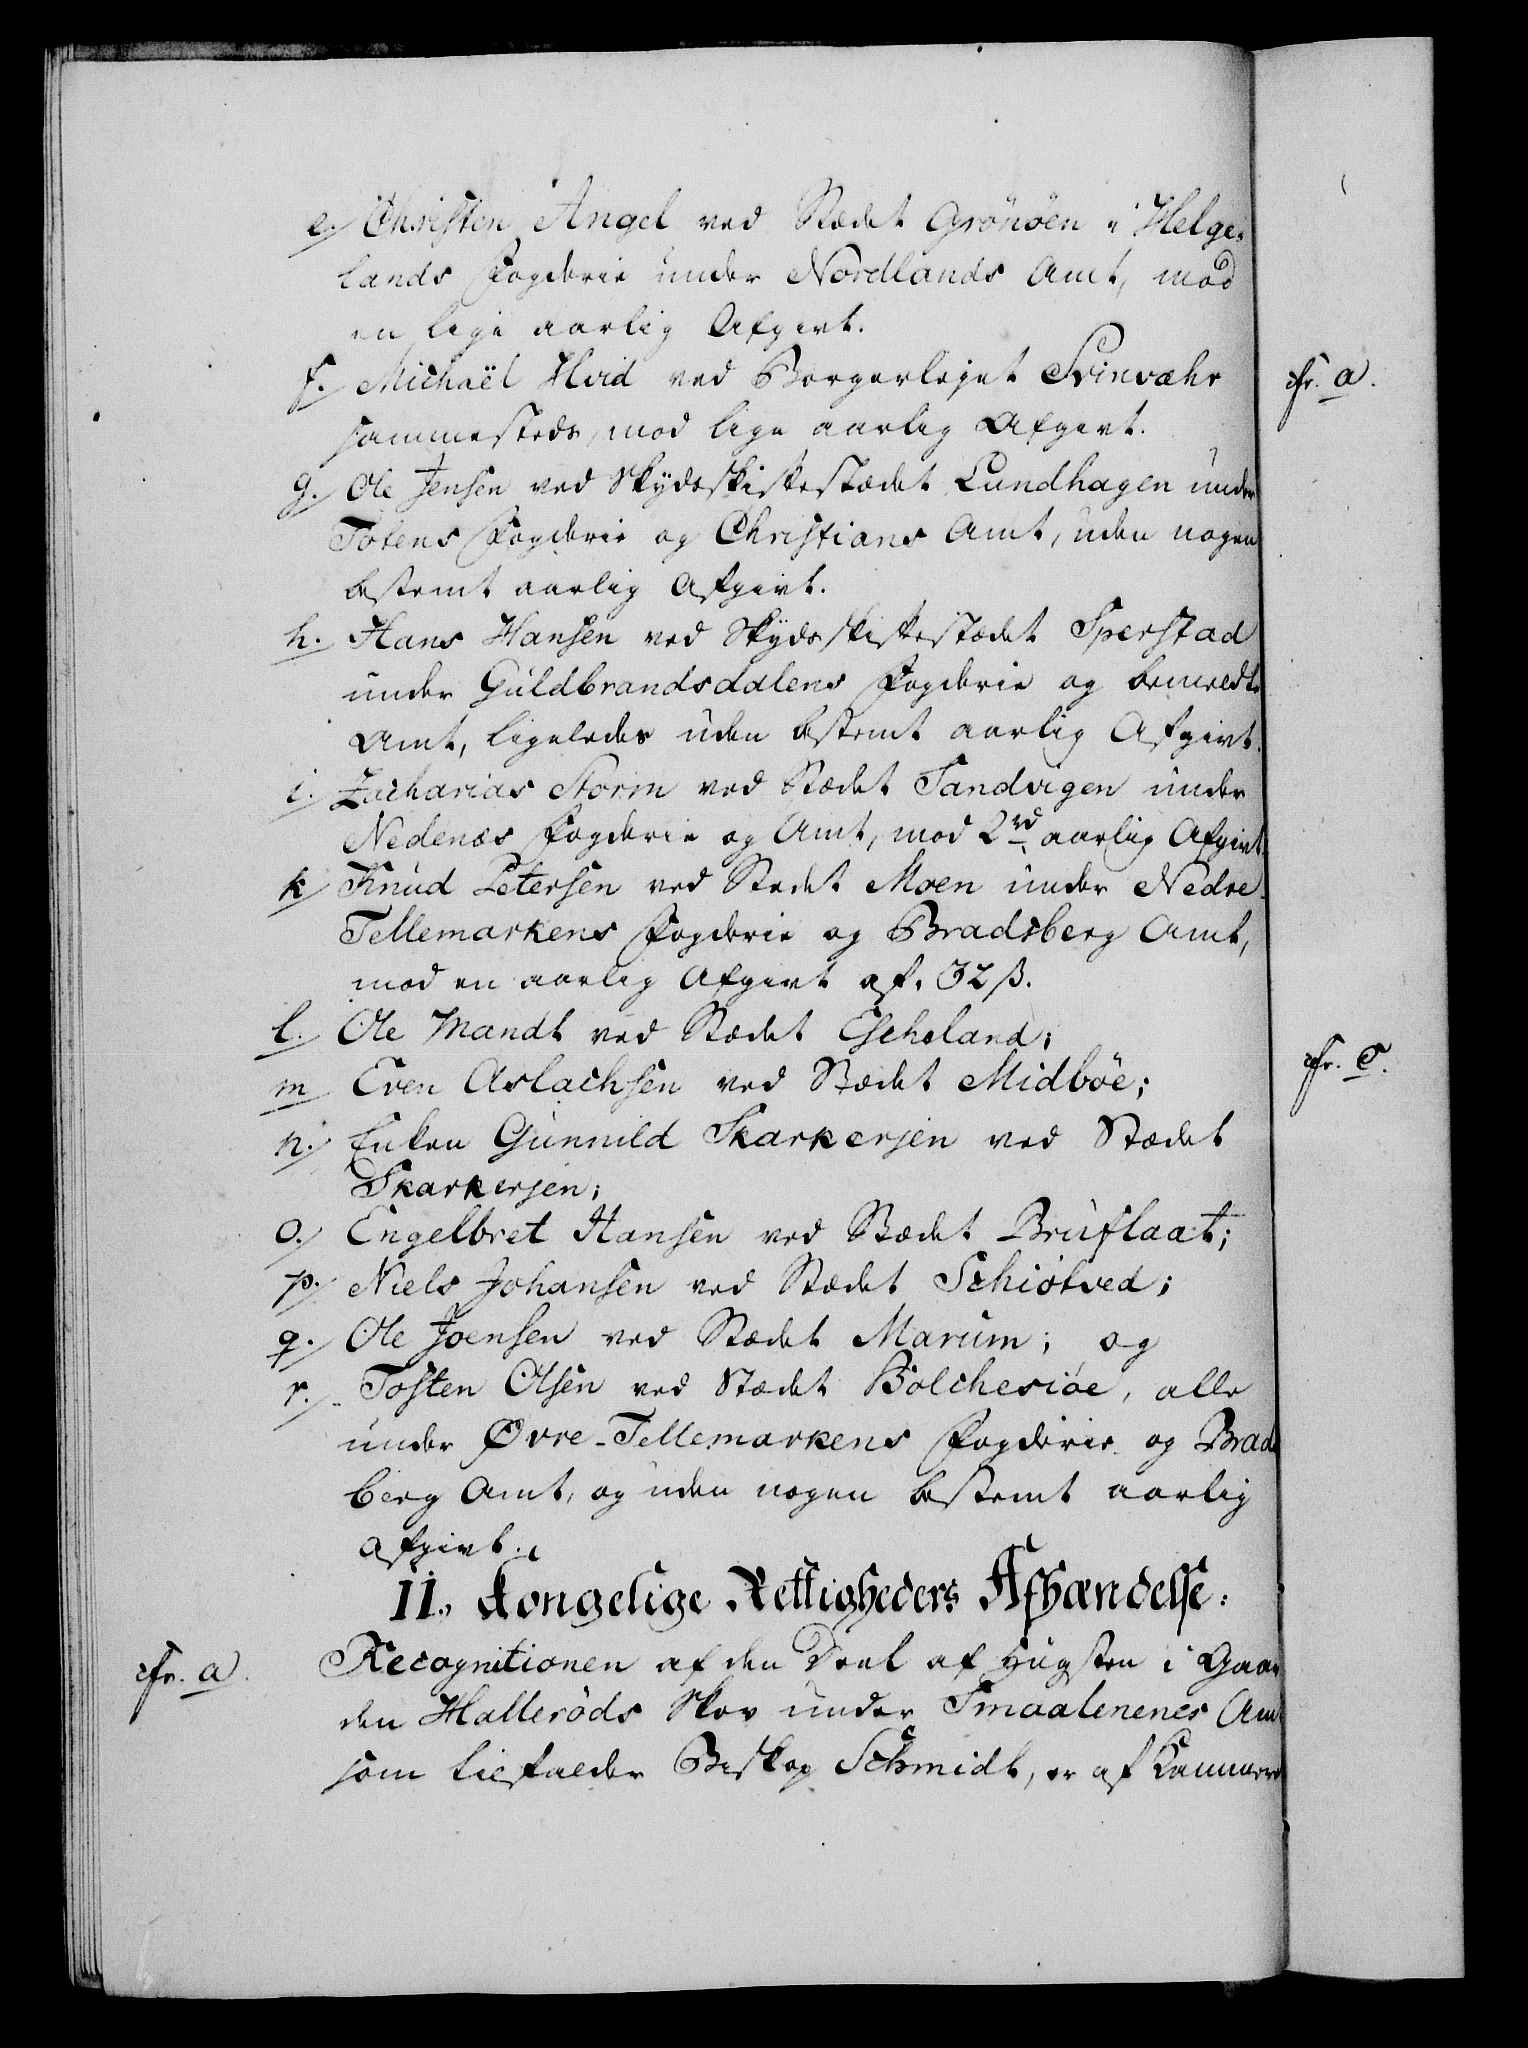 e./ Christen Angel ved Stædet Grönöen i Helge-
lands Fogderie under Nordlands Amt, mod
en lige aarlig Afgivt.
f./ Michaël Hvid ved Borgerlejet Svinvæhr
sammesteds, mod lige aarlig Afgivt.
g./ Ole Jensen ved Skydsskiftestædet Lundhagen under
Totens Fogderie og Christians Amt, uden nogen
bestemt aarlig Afgivt.
h./ Hans Hansen ved Skydsskiftestædet Sperstad
under Guldbrandsdalens Fogderie og bemeldte
Amt, ligeledes uden bestemt aarlig Afgivt.
i./ Zacharias Storm ved Stædet Sandvigen under
Nedenæs Fogderie og Amt, mod 2 rd aarlig Afgivt.
k/ Knud Petersen ved Stedet Moen under Nedre-
Tellemarkens Fogderie og Bradsberg Amt,
mod en aarlig Afgivt af 32 ß.
l./ Ole Mandt ved Stædet Escheland;
m/ Even Aslachsen ved Stædet Midböe;
n./ Enken Gunnild Skarkersen ved Stædet
Skarkersen;
o./ Engelbret Hansen ved Stædet Bruflaat;
p./ Niels Johansen ved Stædet Schiötved;
q./ Ole Joensen ved Stædet Marum; og
r./ Tosten Olsen ved Stædet Bolchesiöe, alle
under Øvre-Tellemarkens Fogderie og Brads
berg Amt, og uden nogen bestemt aarlig
Afgivt.
II., Kongelige Rettigheders Afhændelse.
Recognitionen af den Deel af Hugsten i Gaar
den Halleröds Skov under Smaalenenes Amt
som tilfalder Biskop Schmidt, er af Kammere
cfr. a.
cfr. a.
cfr. c.